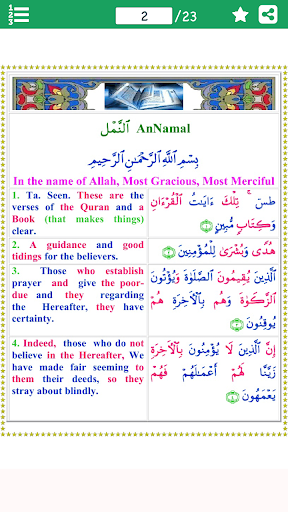 1
2
3
2 /23
النَّمْل AnNamal
بِسْمِ اللَّهِ الرَّحْمَٰنِ الرَّحِيمِ
In the name of Allah, Most Gracious, Most Merciful
1. Ta. Seen. These are the
verses of the Quran and a
Book (that makes things)
clear.
طسٓ ۚ تِلْكَ ءَايَٰتُ ٱلْقُرْءَانِ
وَكِتَابٍ مُّبِينٍ ﴿١﴾
2. A guidance and good
tidings for the believers.
هُدًى وَبُشْرَىٰ لِلْمُؤْمِنِينَ ﴿٢﴾
3. Those who establish
prayer and give the poor-
due and they regarding
the Hereafter, they have
certainty.
ٱلَّذِينَ يُقِيمُونَ ٱلصَّلَوٰةَ وَيُؤْتُونَ
ٱلزَّكَوٰةَ وَهُم بِٱلْءَاخِرَةِ هُمْ
يُوقِنُونَ ﴿٣﴾
4. Indeed, those who do not
believe in the Hereafter, We
have made fair seeming to
them their deeds, so they
stray about blindly.
إِنَّ ٱلَّذِينَ لَا يُؤْمِنُونَ بِٱلْءَاخِرَةِ
زَيَّنَّا لَهُمْ أَعْمَٰلَهُمْ فَهُمْ
يَعْمَهُونَ ﴿٤﴾